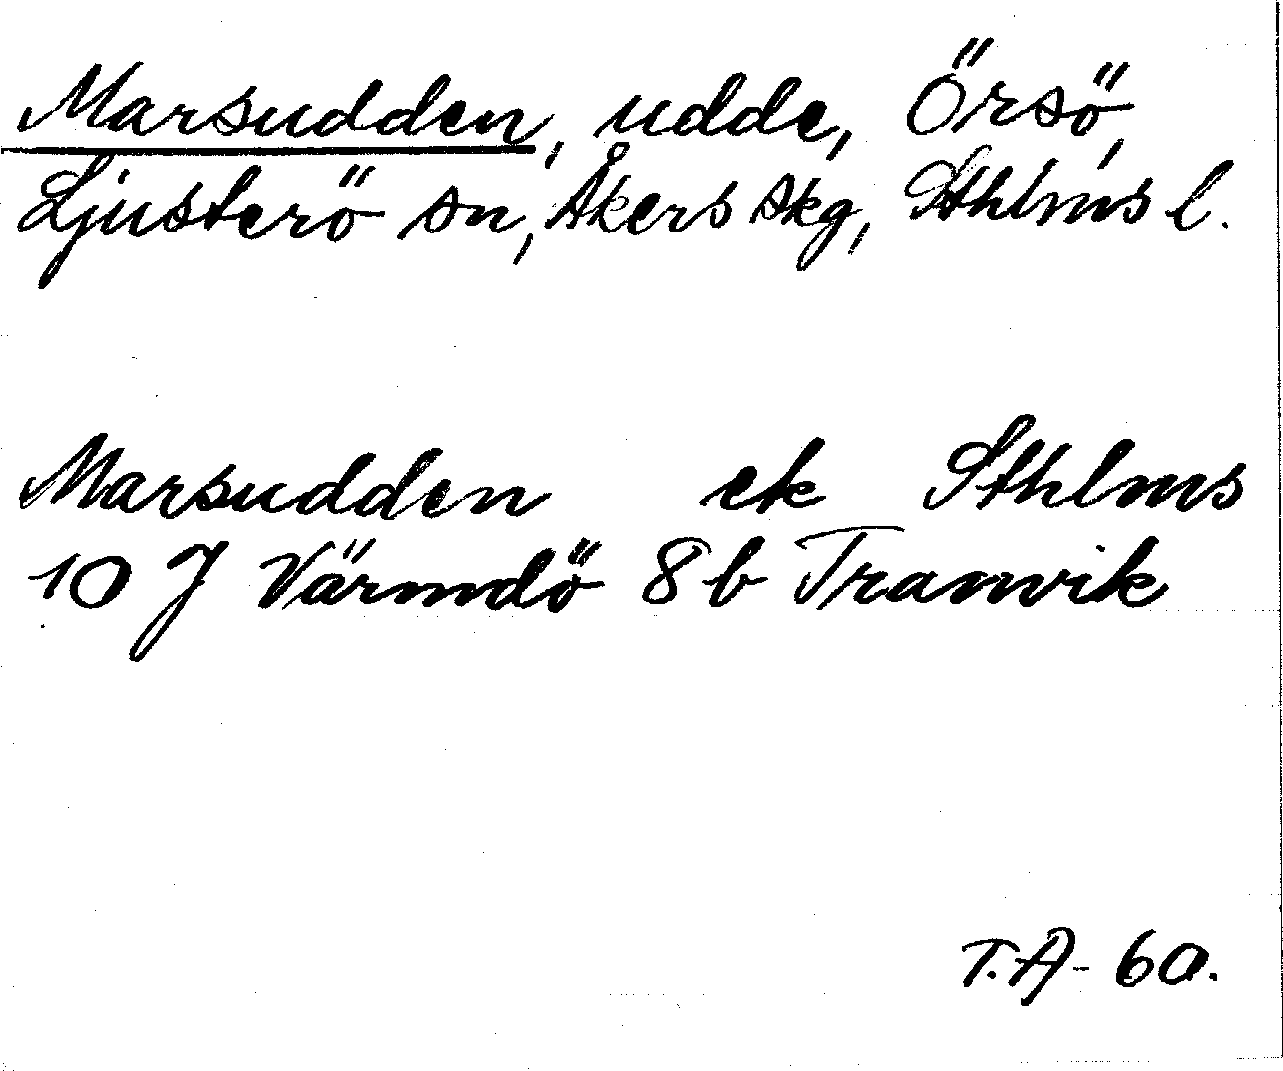 Marsudden, udde, Örsö,
Ljusterö sn, Åkers skg, Sthlms l.
Marsudden ek Sthlms
10 J Värmdö 8 b Tranvik
T.A-60.